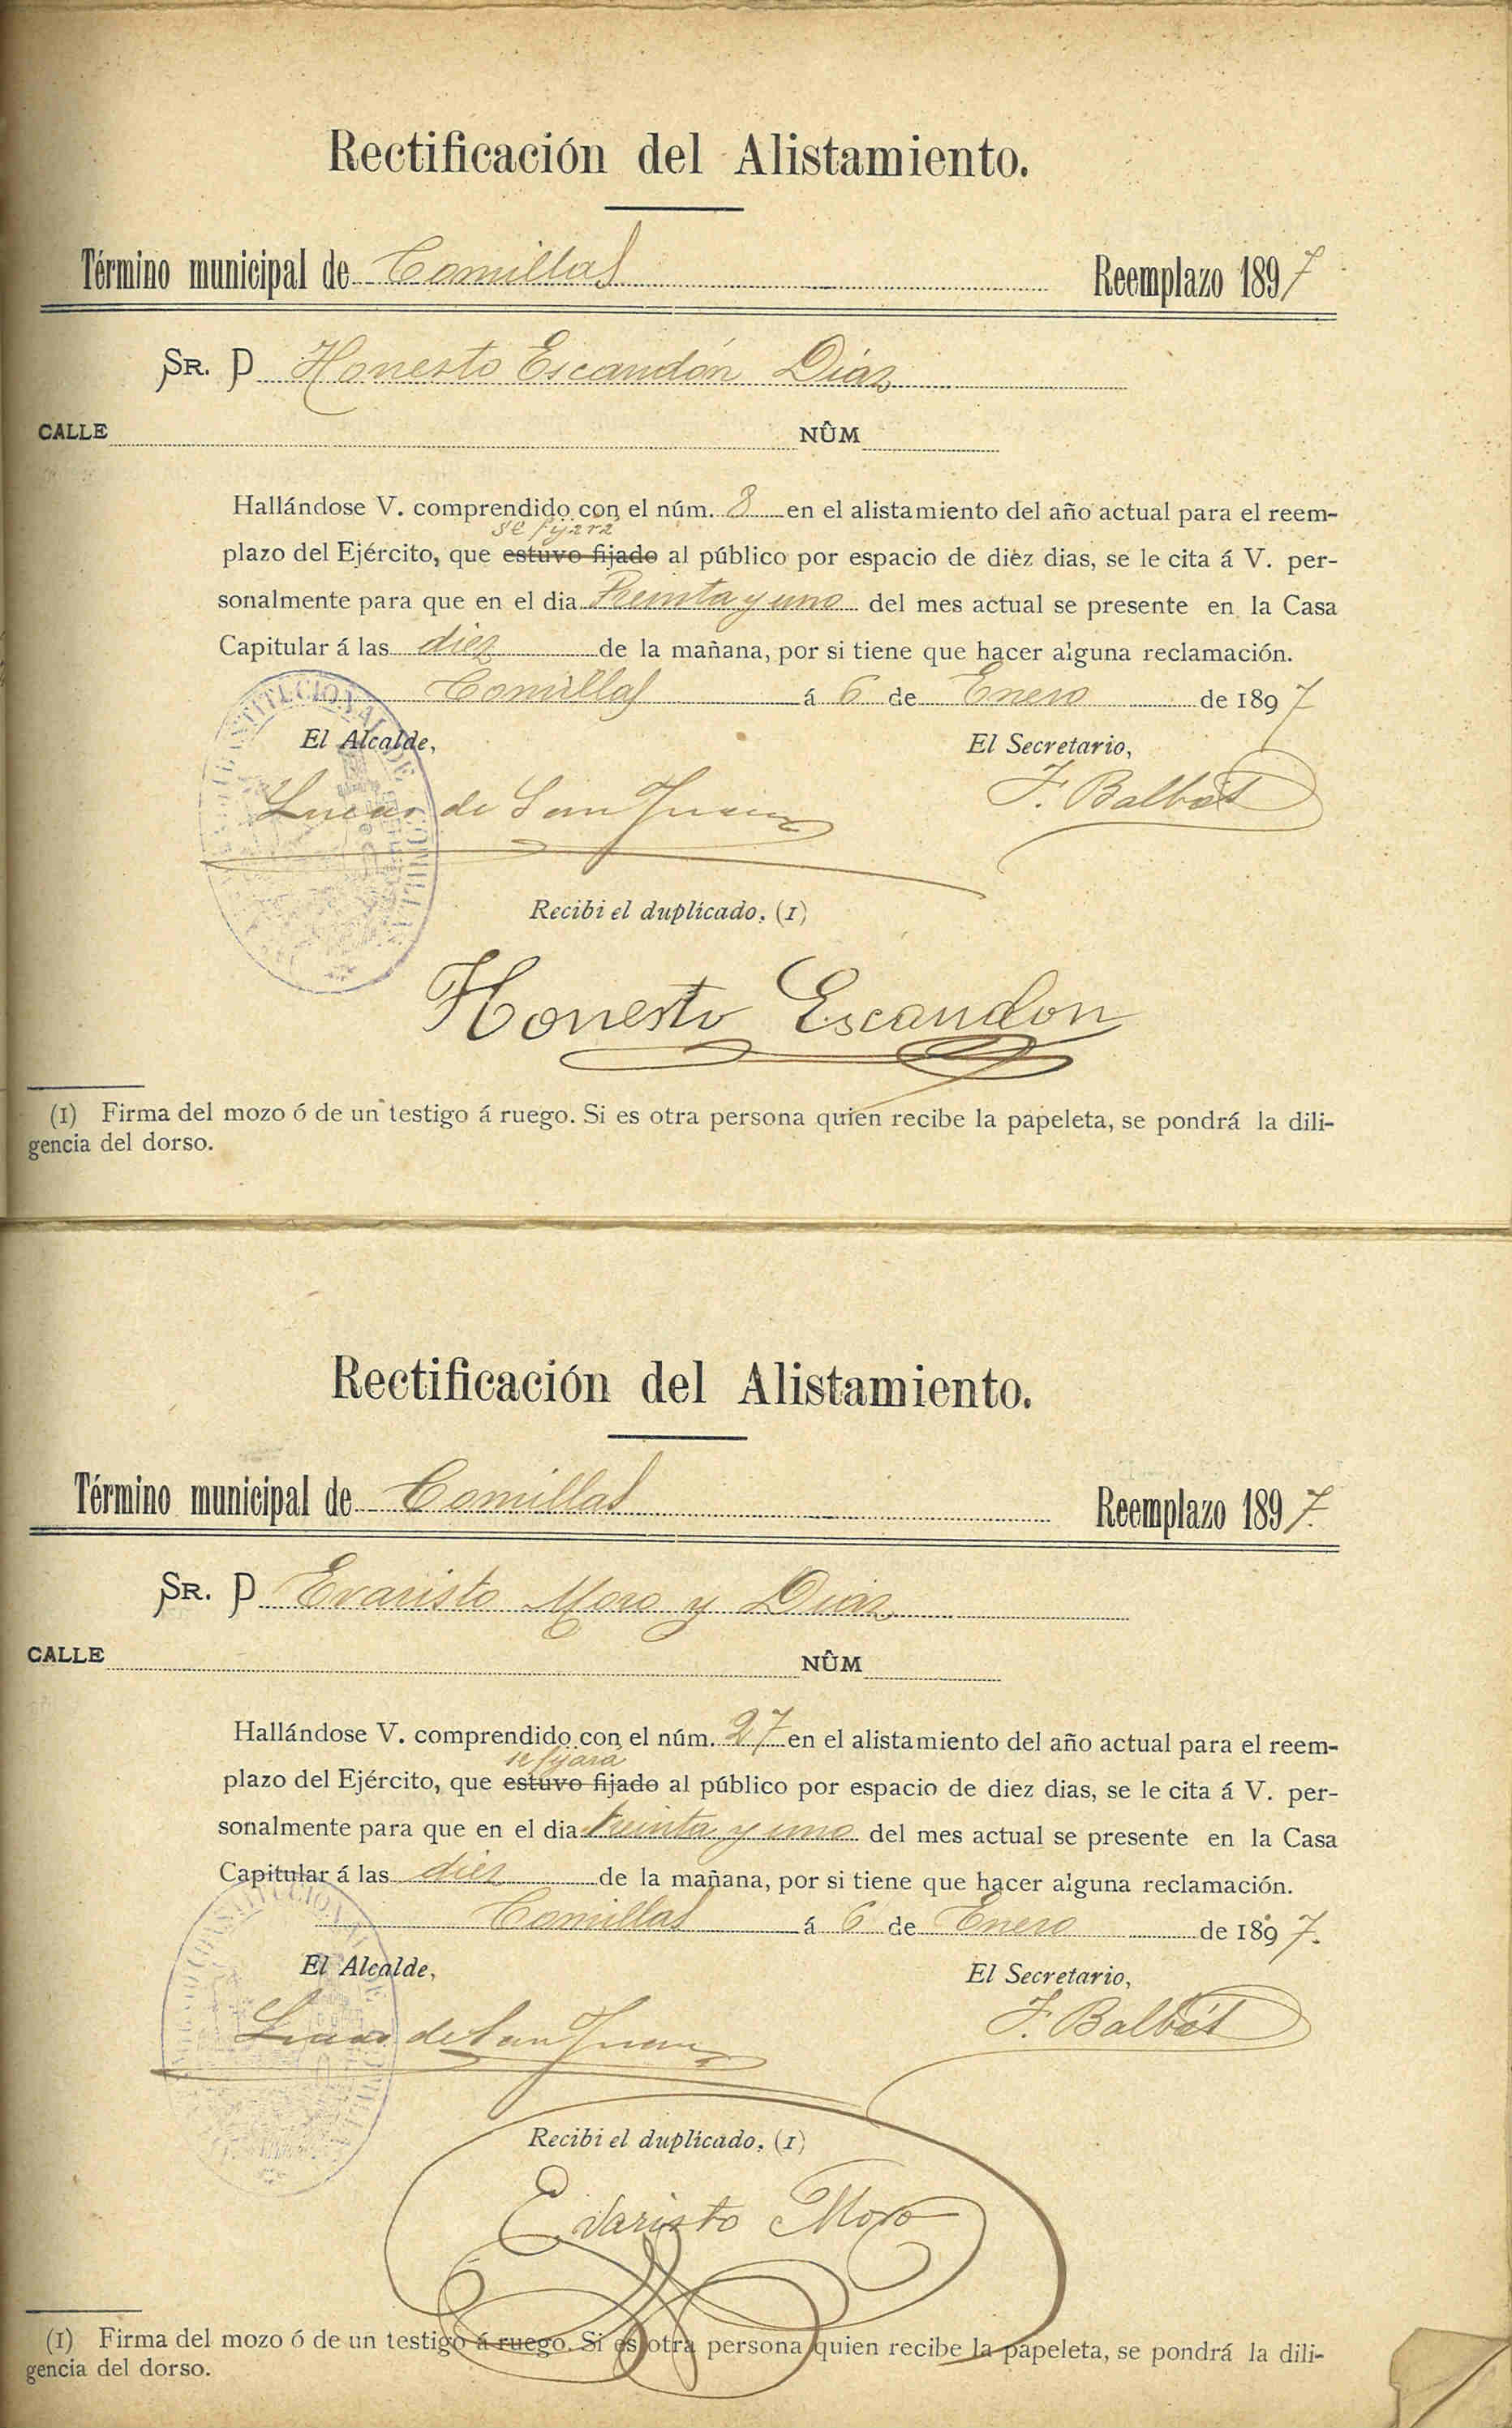 Rectificación del Alistamiento.
Término municipal de Comillas Reemplazo 1897
SR. D Honesto Escandón Diáz
CALLE NÚM
Hallándose V. comprendido con el núm. 8 en el alistamiento del año actual para el reem-
se fijará
plazo del Ejército, que estuvo fijado al público por espacio de diez dias, se le cita á V. per-
sonalmente para que en el dia Treinta y uno del mes actual se presente en la Casa
Capitular á las diez de la mañana, por si tiene que hacer alguna reclamación.
Comillas á 6 de Enero de 1897
El Alcalde, El Secretario,
Lucas de San Juan F. Balbás
Recibi el duplicado, (1)
Honesto Escandon
(1) Firma del mozo ó de un testigo á ruego. Si es otra persona quien recibe la papeleta, se pondrá la dili-
gencia del dorso.
Rectificación del Alistamiento.
Término municipal de Comillas Reemplazo 1897.
SR. D Evaristo Moro y Diaz
CALLE NÚM
Hallándose V. comprendido con el núm. 27 en el alistamiento del año actual para el reem-
se fijará
plazo del Ejército, que estuvo fijado al público por espacio de diez dias, se le cita á V. per-
sonalmente para que en el dia treinta y uno del mes actual se presente en la Casa
Capitular á las diez de la mañana, por si tiene que hacer alguna reclamación.
Comillas á 6 de Enero de 1897.
El Alcalde, El Secretario,
Lucas de San Juan F. Balbás
Recibi el duplicado, (1)
Evaristo Moro
(1) Firma del mozo ó de un testigo á ruego. Si es otra persona quien recibe la papeleta, se pondrá la dili-
gencia del dorso.